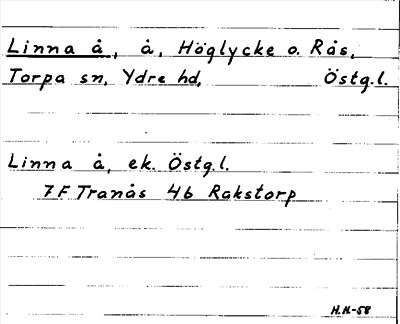 Linna å, å, Höglycke o. Rås,
Torpa sn, Ydre hd, Östg.l.
Linna å, ek. Östg.l.
7F Tranås 4b Rakstorp
H.K-58